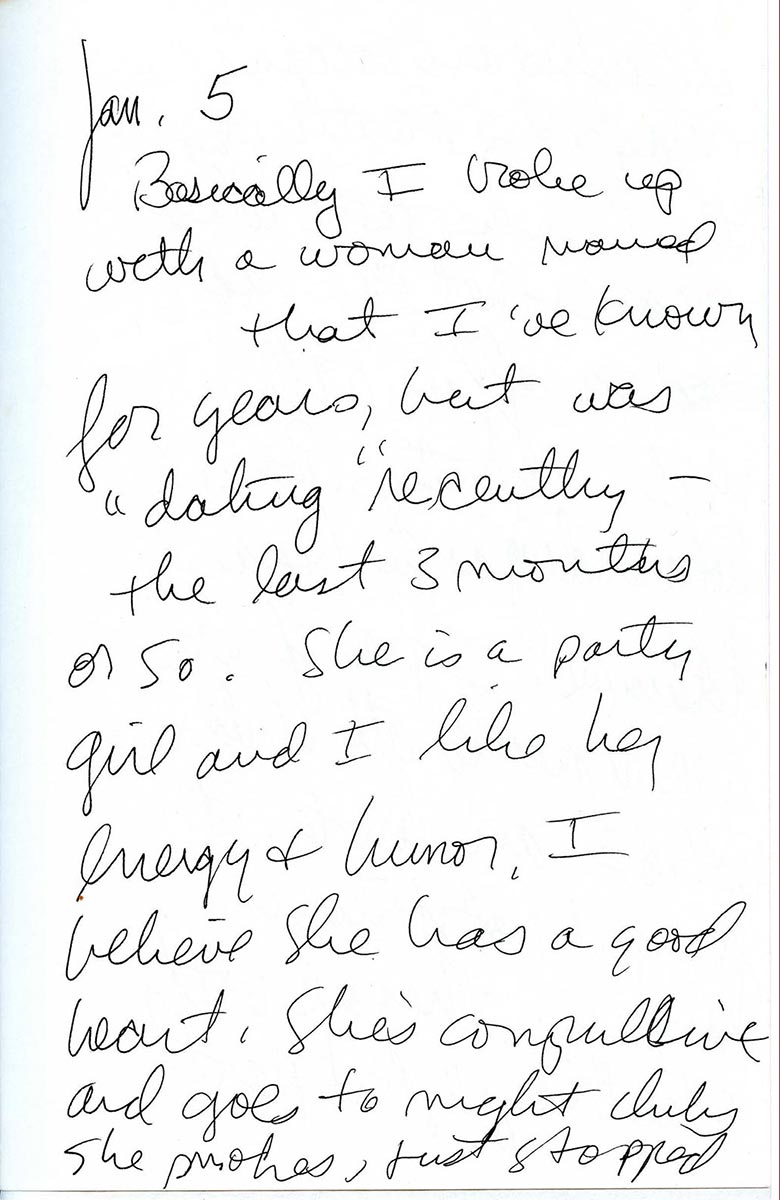 Jan. 5
Basically I broke up
with a woman named
that I've known
for years, but was
"dating" recently –
the last 3 months
or so. She is a party
girl and I like her
energy & humor, I
believe she has a good
heart. She's compulsive
and goes to night clubs
she smokes, just stopped